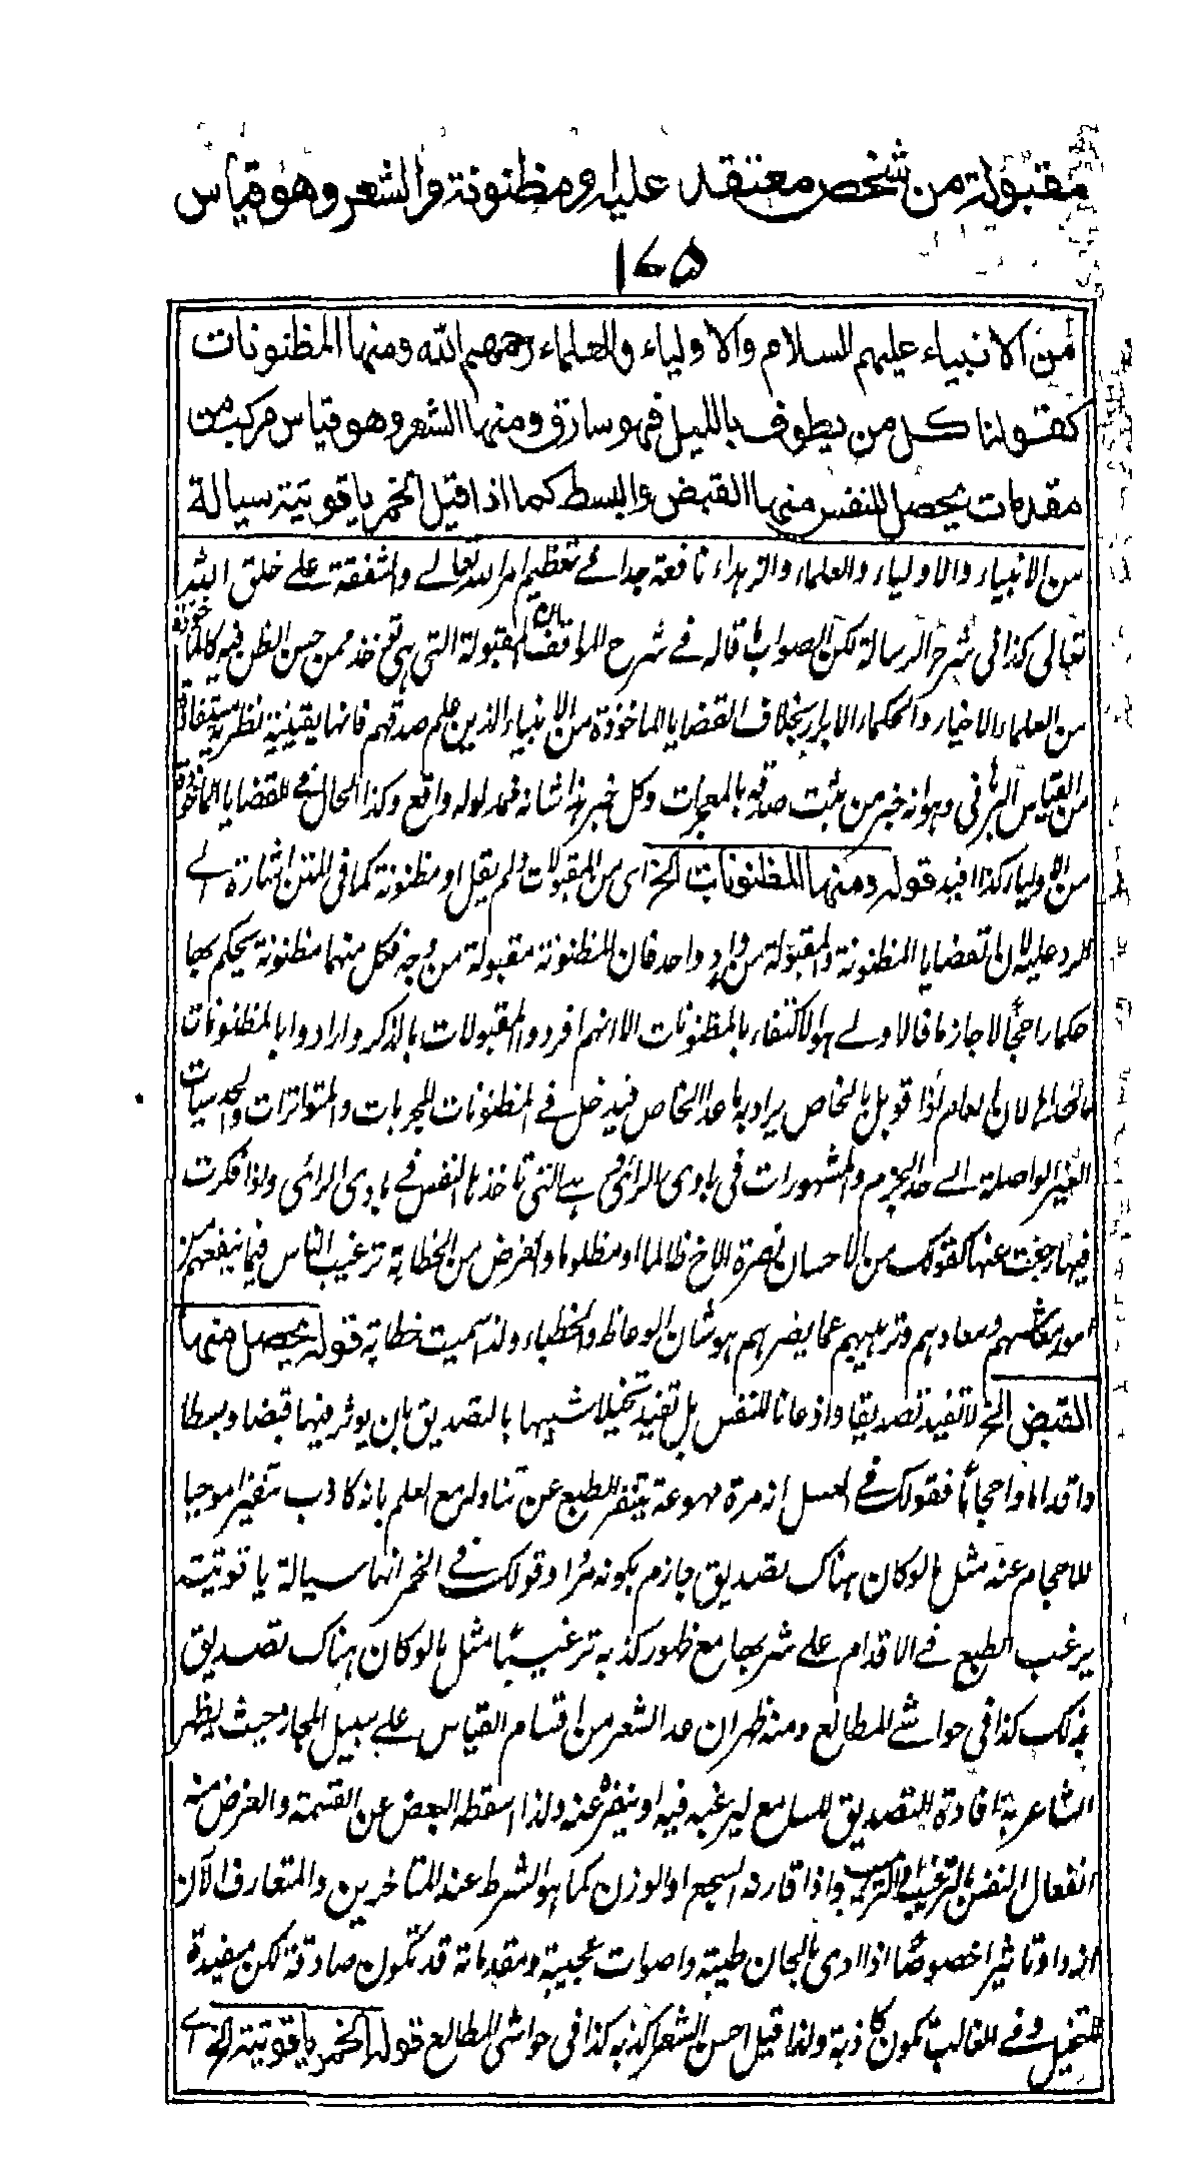 مقبولة من شخص معتقد عليه ومظنونة والشعر وهو قياس
١٧٥
من الانبياء عليهم السلام والاولياء والعلماء رحمهم الله ومنها المظنونات
كقولنا كل من يطوف بالليل فهو سارق ومنها الشعر وهو قياس مركب من
مقدمات يحصل للنفس منها القبض والبسط كما اذا قيل الخمر ياقوتية سيالة
من الانبياء والاولياء والعلماء والزهداء نافعة جدا فى تعظيم امر الله تعالى والشفقة على خلق الله
تعالى كذا فى شرح الرسالة لكن الصواب ما قاله فى شرح المواقف ان المقبولة التى هى تؤخذ ممن حسن الظن فيه كالماخوذة
من العلماء الاخيار والحكماء الابرار بخلاف القضايا الماخوذة من الانبياء الذين علم صدقهم فانها يقينية نظرية مستفادة
من القياس الشرفى وهو انه خبر من يثبت صدقه بالمعجزات وكل خبر هذا شانه فمدلوله واقع وكذا الحال فى القضايا الماخوذة
من الاولياء كذا افيد قوله ومنها المظنونات الخ اى من المقبولات ولم يقل او مظنونة كما فى المتن اشارة الى
الرد عليه لان القضايا المظنونة والمقبولة من واد واحد فان المظنونة مقبولة من وجه فكل منهما مظنونة يحكم بها
حكما راجحا لا جازما فالاولى هو الاكتفاء بالمظنونات الا انهم افردوا المقبولات بالذكر وارادوا بالمظنونات
ما عداها لان العام اذا قوبل بالخاص يراد به ما عدا الخاص فيدخل فى المظنونات المجربات والمتواترات والحدسيات
الغير الواصلة الى حد الجزم والمشهورات فى بادى الرائى وهى التى تاخذها النفس فى بادى الرائى واذا فكرت
فيها رجعت عنها كقولك من الاحسان نصرة الاخ ظالما او مظلوما والغرض من الخطابة ترغيب الناس فيما ينفعهم من
امور معاشهم ومعادهم وترهيبهم عما يضرهم هو شان الوعاظ والخطباء ولذا سميت خطابة قوله يحصل منها
القبض الخ لا تفيد تصديقا واذعانا للنفس بل تفيد تخيلا شبيها بالتصديق بان يوثر فيها قبضا وبسطا
واقداما واحجاما فقولك فى العسل انه مرة مهوعة يتنفر الطبع عن تناوله مع العلم بانه كاذب تنفيرا موجبا
للاحجام عنه مثل ما لو كان هناك تصديق جازم بكونه مرا وقولك فى الخمر انها سيالة ياقوتية
يرغب الطبع فى الاقدام على شربها مع ظهور كذبه ترغيبا مثل ما لو كان هناك تصديق
بذلك كذا فى حواشى المطالع ومنه ظهر ان عد الشعر من اقسام القياس على سبيل المجاز حيث يظهر
الشاعر به افادة التصديق للسامع ليرغبه فيه او ينفره عنه ولذا اسقطه البعض عن القسمة والغرض منه
انفعال النفس بالترغيب او الترهيب واذا قارنه السجع او الوزن كما هو الشرط عند المتاخرين والمتعارف الآن
ازداد تاثيرا خصوصا اذا ادى بالحان طيبة واصوات عجيبة ومقدماته قد تكون صادقة لكن مفيدة
للتخيل وفى الغالب تكون كاذبة ولذا قيل احسن الشعر اكذبه كذا فى حواشى المطالع قوله الخمر ياقوتية الخ اى